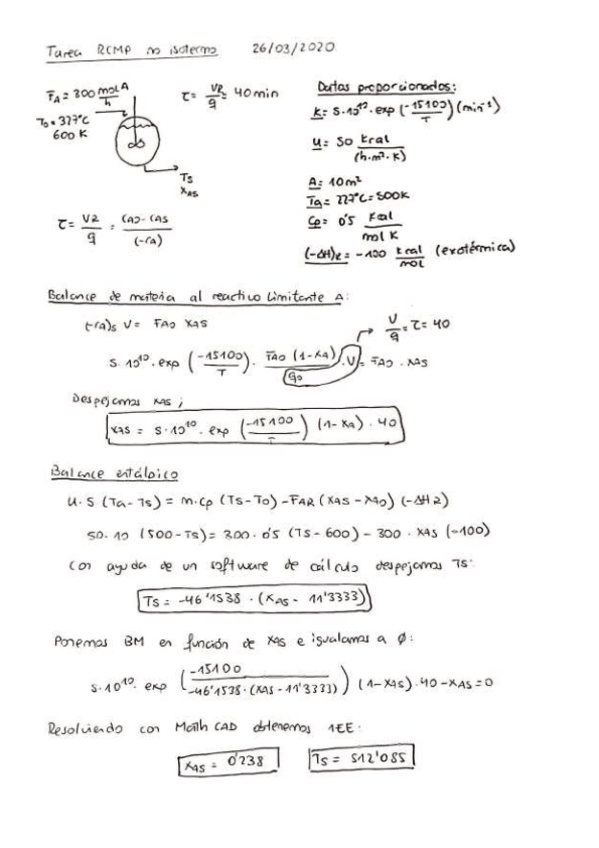 Tarea RCMP no isotermo 26/03/2020
FA = 300 molA/h
T0 = 327°C
600 K
τ = VR/q = 40 min
Ts
XAS
τ = VR/q = (CA0 - CAS)/(-rA)
Datos proporcionados:
K = 5·10¹⁰·exp(-15100/T) (min⁻¹)
U = 50 kcal/(h·m²·K)
A = 10m²
Ta = 227°C = 500K
Cp = 0'5 kcal/mol K
(-ΔH)R = -100 kcal/mol (exotérmica)
Balance de materia al reactivo limitante A:
(-rA)s V = FA0 XAS
V/q = τ = 40
5·10¹⁰·exp(-15100/T) · FA0 (1-XA)/q0 · V = FA0 · XAS
Despejamos XAS;
XAS = 5·10¹⁰·exp(-15100/T) (1-XA)·40
Balance entálpico
U·S (Ta-Ts) = m·Cp (Ts-T0) - FAR (XAS - XA0) (-ΔH2)
50·10 (500-Ts) = 300·0'5 (Ts-600) - 300·XAS (-100)
Con ayuda de un software de cálculo despejamos Ts:
Ts = -46'1538 · (XAS - 11'3333)
Ponemos BM en función de XAS e igualamos a ø:
5·10¹⁰·exp(-15100/(-46'1538·(XAS-11'3333))) (1-XAS)·40-XAS=0
Resolviendo con Math CAD obtenemos 1EE:
XAS = 0'238 Ts = 512'085